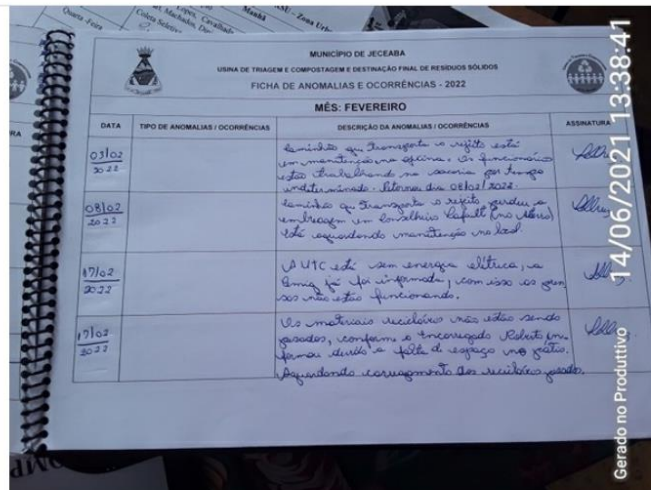 Quarta-Feira
Coleta Seletiva
Manhã
Zona Urb
MUNICÍPIO DE JECEABA
USINA DE TRIAGEM E COMPOSTAGEM E DESTINAÇÃO FINAL DE RESÍDUOS SÓLIDOS
FICHA DE ANOMALIAS E OCORRÊNCIAS - 2022
MÊS: FEVEREIRO
DATA TIPO DE ANOMALIAS / OCORRÊNCIAS DESCRIÇÃO DA ANOMALIAS / OCORRÊNCIAS ASSINATURA
03/02 2022
Caminhão que transporta o rejeito está
em manutenção na oficina. Os funcionários
estão trabalhando na por tempo
indeterminado. Retornou dia 08/02/2022.
08/02 2022
Caminhão que transporta o rejeito perdeu a
embreagem em Conselheiro Lafaiete (no Morro)
Está aguardando manutenção no local.
17/02 2022
A UTC está sem energia elétrica, a
Cemig já foi informada, com isso as pren
sas não estão funcionando.
17/02 2022
Os materiais recicláveis não estão sendo
pesados, conforme o Encarregado Roberto in
formou devido a falta de espaço no pátio.
Aguardando carregamento dos recicláveis pesados.
14/06/2021 13:38:41
Gerado no Produttivo